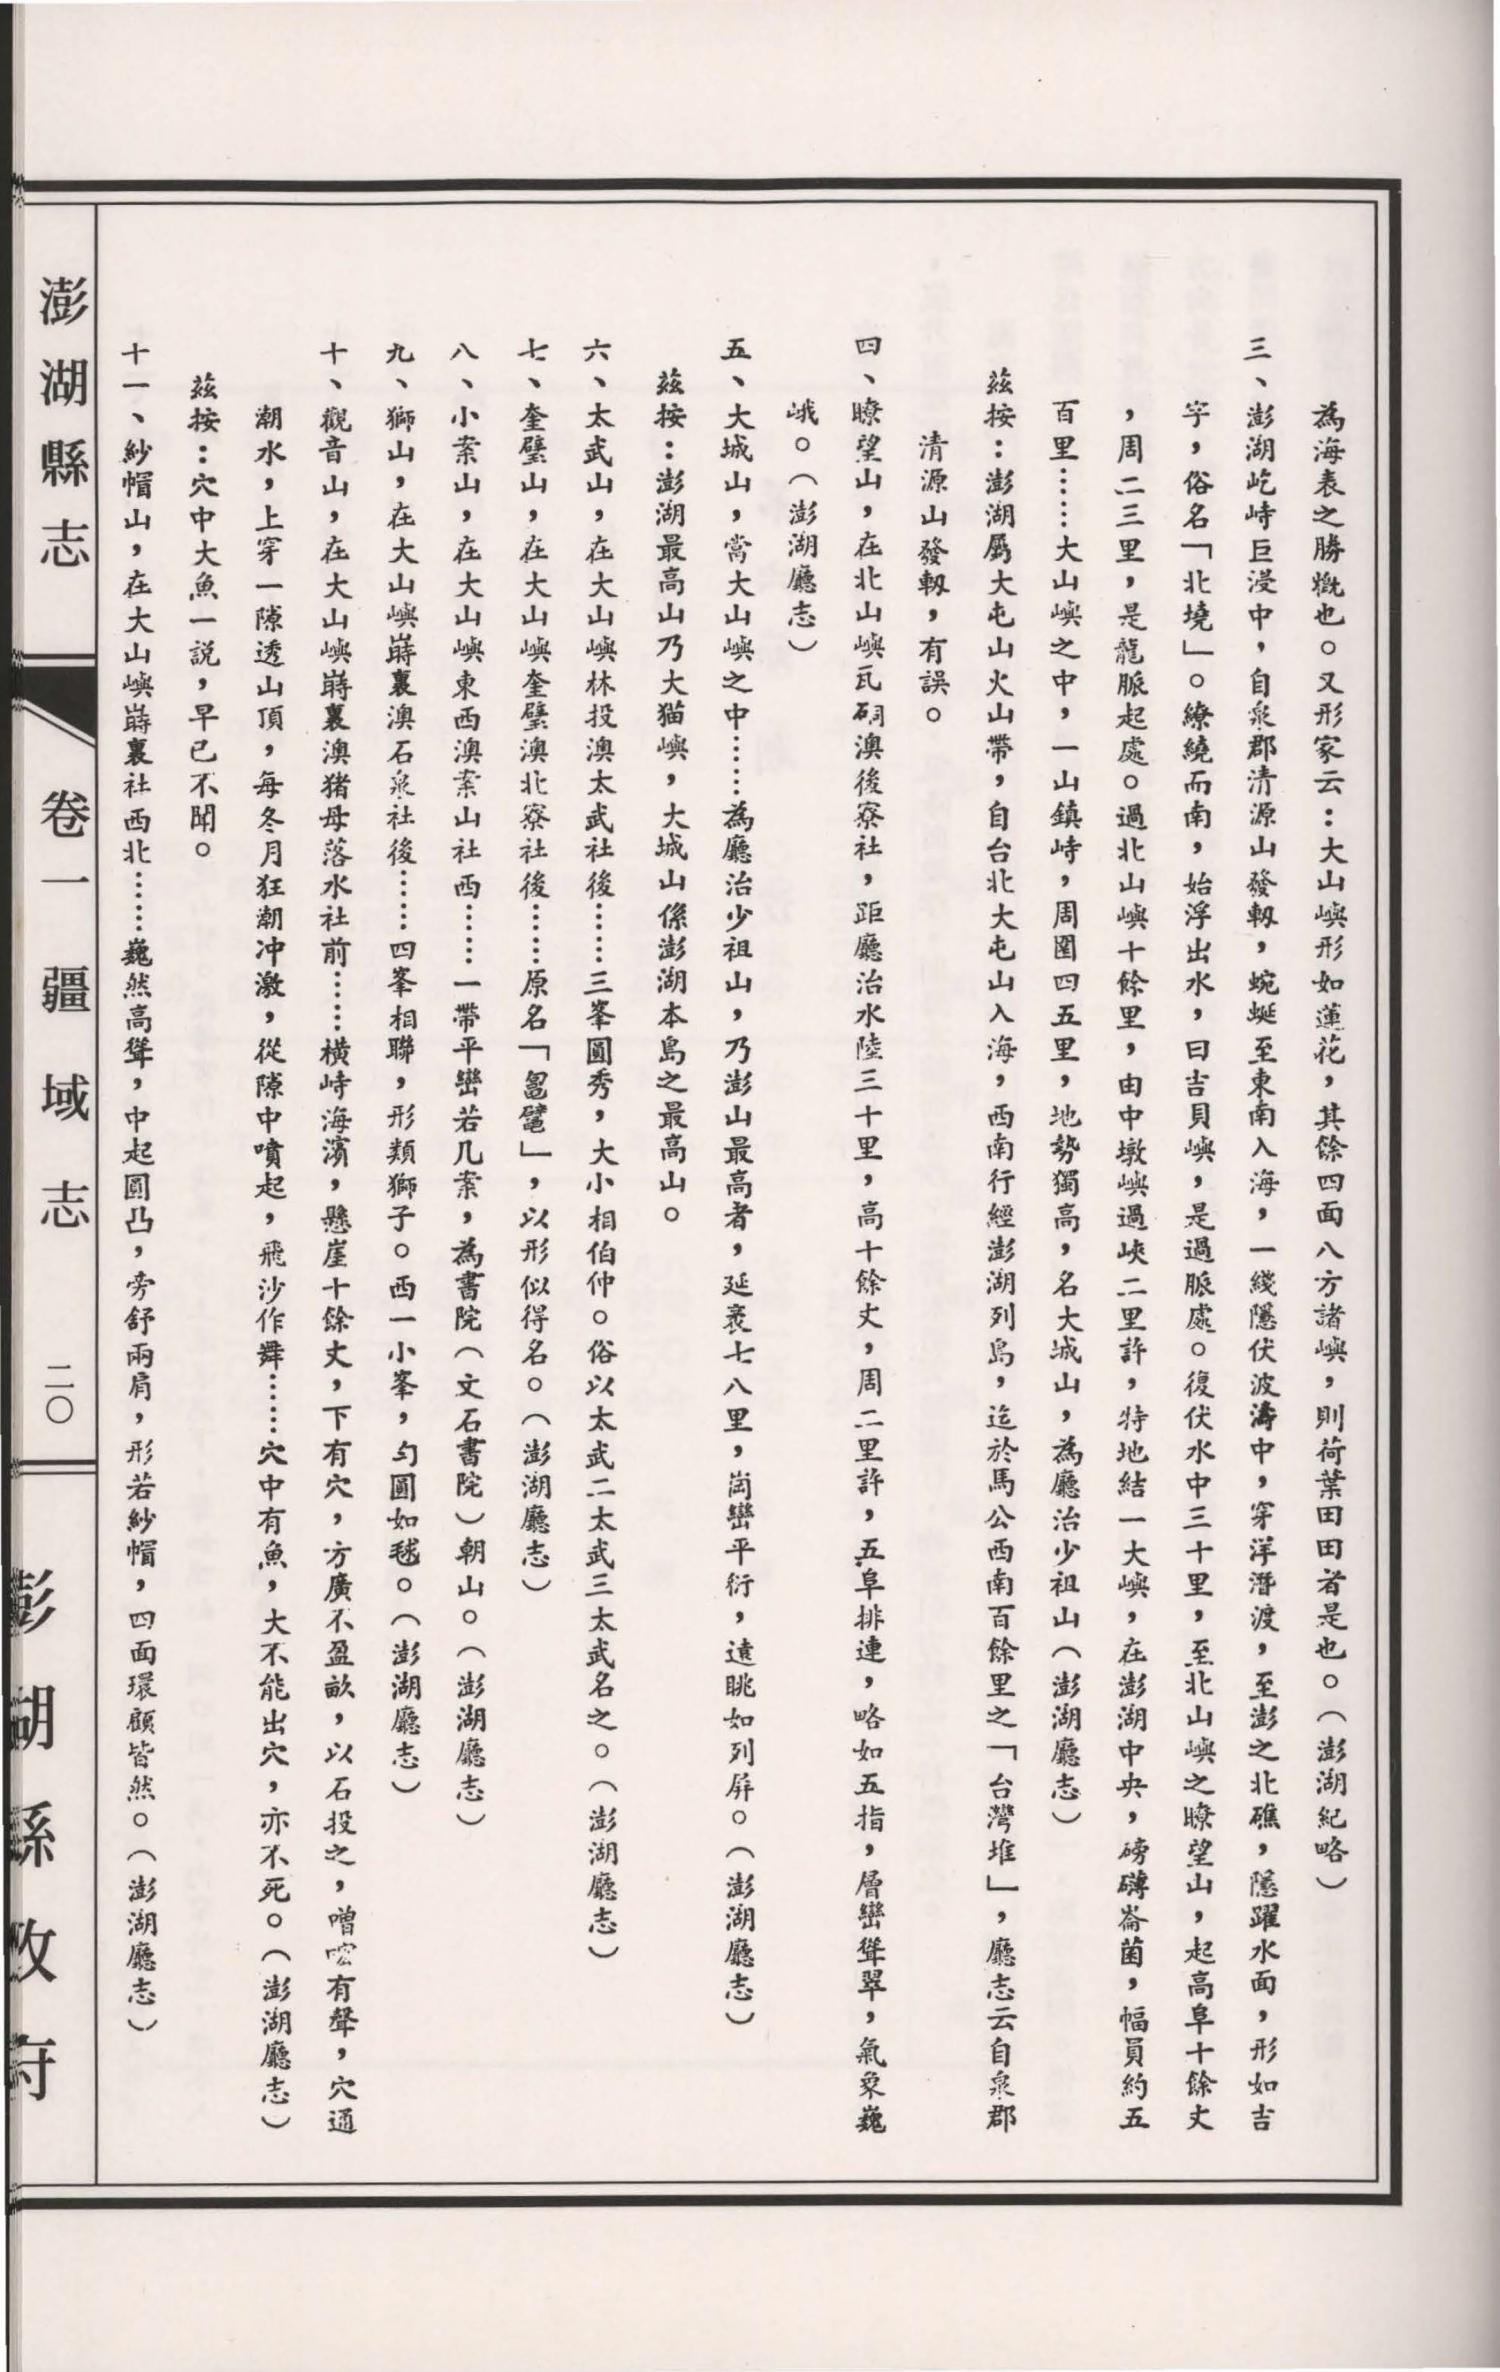 為海表之勝概也。又形家云：大山嶼形如蓮花，其餘四面八方諸嶼，則荷葉田田者是也。（澎湖紀略）
三、澎湖屹峙巨浸中，自泉郡清源山發軔，蜿蜒至東南入海，一綫隱伏波濤中，穿洋潛渡，至澎之北礁，隱躍水面，形如吉
字，俗名「北墝」。繚繞而南，始浮出水，曰吉貝嶼，是過脈處。復伏水中三十里，至北山嶼之瞭望山，起高阜十餘丈
，周二三里，是龍脈起處。過北山嶼十餘里，由中墩嶼過峽二里許，特地結一大嶼，在澎湖中央，磅礴崙菌，幅員約五
百里……大山嶼之中，一山鎮峙，周圍四五里，地勢獨高，名大城山，為廳治少祖山（澎湖廳志）
茲按：澎湖屬大屯山火山帶，自台北大屯山入海，西南行經澎湖列島，迄於馬公西南百餘里之「台灣堆」，廳志云自泉郡
清源山發軔，有誤。
四、瞭望山，在北山嶼瓦硐澳後寮社，距廳治水陸三十里，高十餘丈，周二里許，五阜排連，略如五指，層巒聳翠，氣象巍
峨。（澎湖廳志）
五、大城山，當大山嶼之中……為廳治少祖山，乃澎山最高者，延袤七八里，崗巒平衍，遠眺如列屏。（澎湖廳志）
茲按：澎湖最高山乃大猫嶼，大城山係澎湖本島之最高山。
六、太武山，在大山嶼林投澳太武社後……三峯圓秀，大小相伯仲。俗以太武二太武三太武名之。（澎湖廳志）
七、奎璧山，在大山嶼奎璧澳北寮社後……原名「龜鼊」，以形似得名。（澎湖廳志）
八、小案山，在大山嶼東西澳案山社西……一帶平巒若几案，為書院（文石書院）朝山。（澎湖廳志）
九、獅山，在大山嶼嵵裏澳石泉社後……四峯相聯，形類獅子。西一小峯，勻圓如毬。（澎湖廳志）
十、觀音山，在大山嶼嵵裏澳猪母落水社前……橫峙海濱，懸崖十餘丈，下有穴，方廣不盈畝，以石投之，噌吰有聲，穴通
潮水，上穿一隙透山頂，每冬月狂潮冲激，從隙中噴起，飛沙作舞……穴中有魚，大不能出穴，亦不死。（澎湖廳志）
茲按：穴中大魚一説，早已不聞。
十一、紗帽山，在大山嶼嵵裏社西北……巍然高聳，中起圓凸，旁舒兩肩，形若紗帽，四面環顧皆然。（澎湖廳志）
澎湖縣志 卷一疆域志 二〇 澎湖縣政府